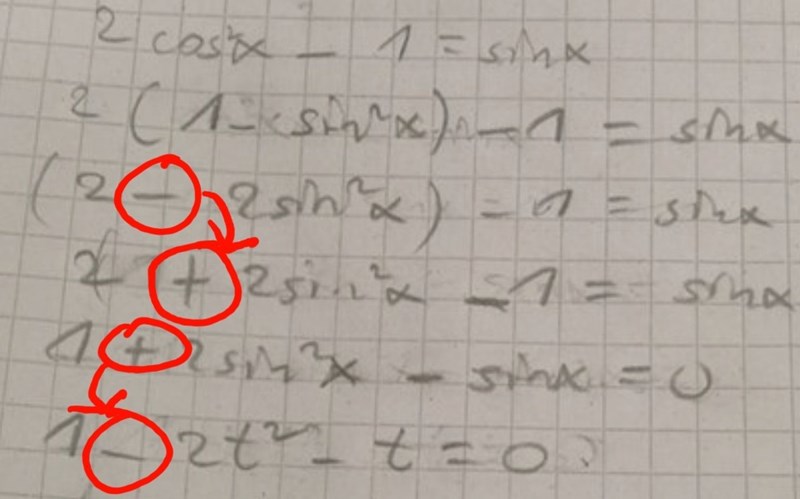 2 cos²x - 1 = sinx
2 (1 - sin²x) - 1 = sinx
(2 - 2sin²x) - 1 = sinx
2 + 2sin²x - 1 = sinx
1 + 2sin²x - sinx = 0
1 - 2t² - t = 0